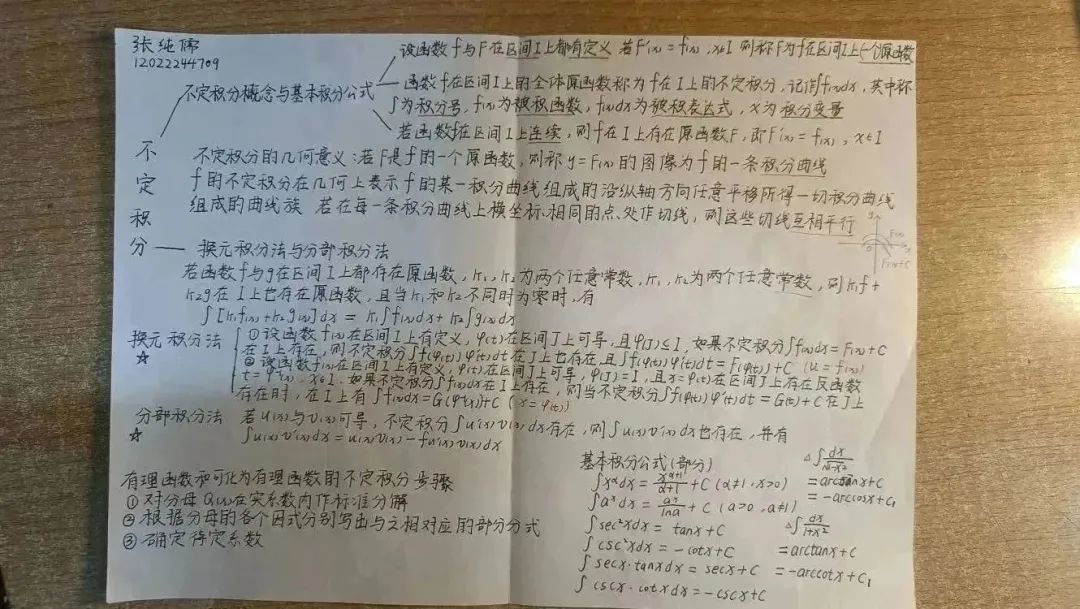 张纯儒
12022244709
不定积分
不定积分概念与基本积分公式
设函数f与F在区间I上都有定义 若F'(x)=f(x),x∈I 则称F为f在区间I上一个原函数
函数f在区间I上的全体原函数称为f在I上的不定积分,记作∫f(x)dx,其中称
∫为积分号,f(x)为被积函数,f(x)dx为被积表达式,x为积分变量
若函数f在区间I上连续,则f在I上存在原函数F,即F'(x)=f(x),x∈I
不定积分的几何意义:若F是f的一个原函数,则称y=F(x)的图像为f的一条积分曲线
f的不定积分在几何上表示f的某一积分曲线组成的沿纵轴方向任意平移所得一切积分曲线
组成的曲线族 若在每一条积分曲线上横坐标相同的点处作切线,则这些切线互相平行
y
F(x)
0
x
F(x)+C
换元积分法与分部积分法
若函数f与g在区间I上都存在原函数,k₁,k₂为两个任意常数,k₁,k₂为两个任意常数,则k₁f+
k₂g在I上也存在原函数,且当k₁和k₂不同时为零时,有
∫[k₁f(x)+k₂g(x)]dx=k₁∫f(x)dx+k₂∫g(x)dx
换元积分法
☆
①设函数f(x)在区间I上有定义,φ(t)在区间J上可导,且φ(J)⊆I.如果不定积分∫f(x)dx=F(x)+C
在I上存在,则不定积分∫f(φ(t))φ'(t)dt在J上也存在,且∫f(φ(t))φ'(t)dt=F(φ(t))+C (u=f(x))
②设函数f(x)在区间I上有定义,φ(t)在区间J上可导,φ(J)=I,且x=φ(t)在区间J上存在反函数
t=φ⁻¹(x),x∈I.如果不定积分∫f(x)dx在I上存在,则当不定积分∫f(φ(t))φ'(t)dt=G(t)+C在J上
存在时,在I上有∫f(x)dx=G(φ⁻¹(x))+C (x=φ(t))
分部积分法
☆
若u(x)与v(x)可导,不定积分∫u'(x)v(x)dx存在,则∫u(x)v'(x)dx也存在,并有
∫u(x)v'(x)dx=u(x)v(x)-∫u'(x)v(x)dx
有理函数和可化为有理函数的不定积分步骤
①对分母Q(x)在实系数内作标准分解
②根据分母的各个因式分别写出与之相对应的部分分式
③确定待定系数
基本积分公式(部分)
∫x^α dx=x^(α+1)/(α+1)+C (α≠1,x>0)
∫a^x dx=a^x/lna+C (a>0,a≠1)
∫sec²xdx=tanx+C
∫csc²xdx=-cotx+C
∫secx·tanxdx=secx+C
∫cscx·cotxdx=-cscx+C
△∫dx/√(1-x²)
=arcsinx+C
=-arccosx+C₁
△∫dx/(1+x²)
=arctanx+C
=-arccotx+C₁